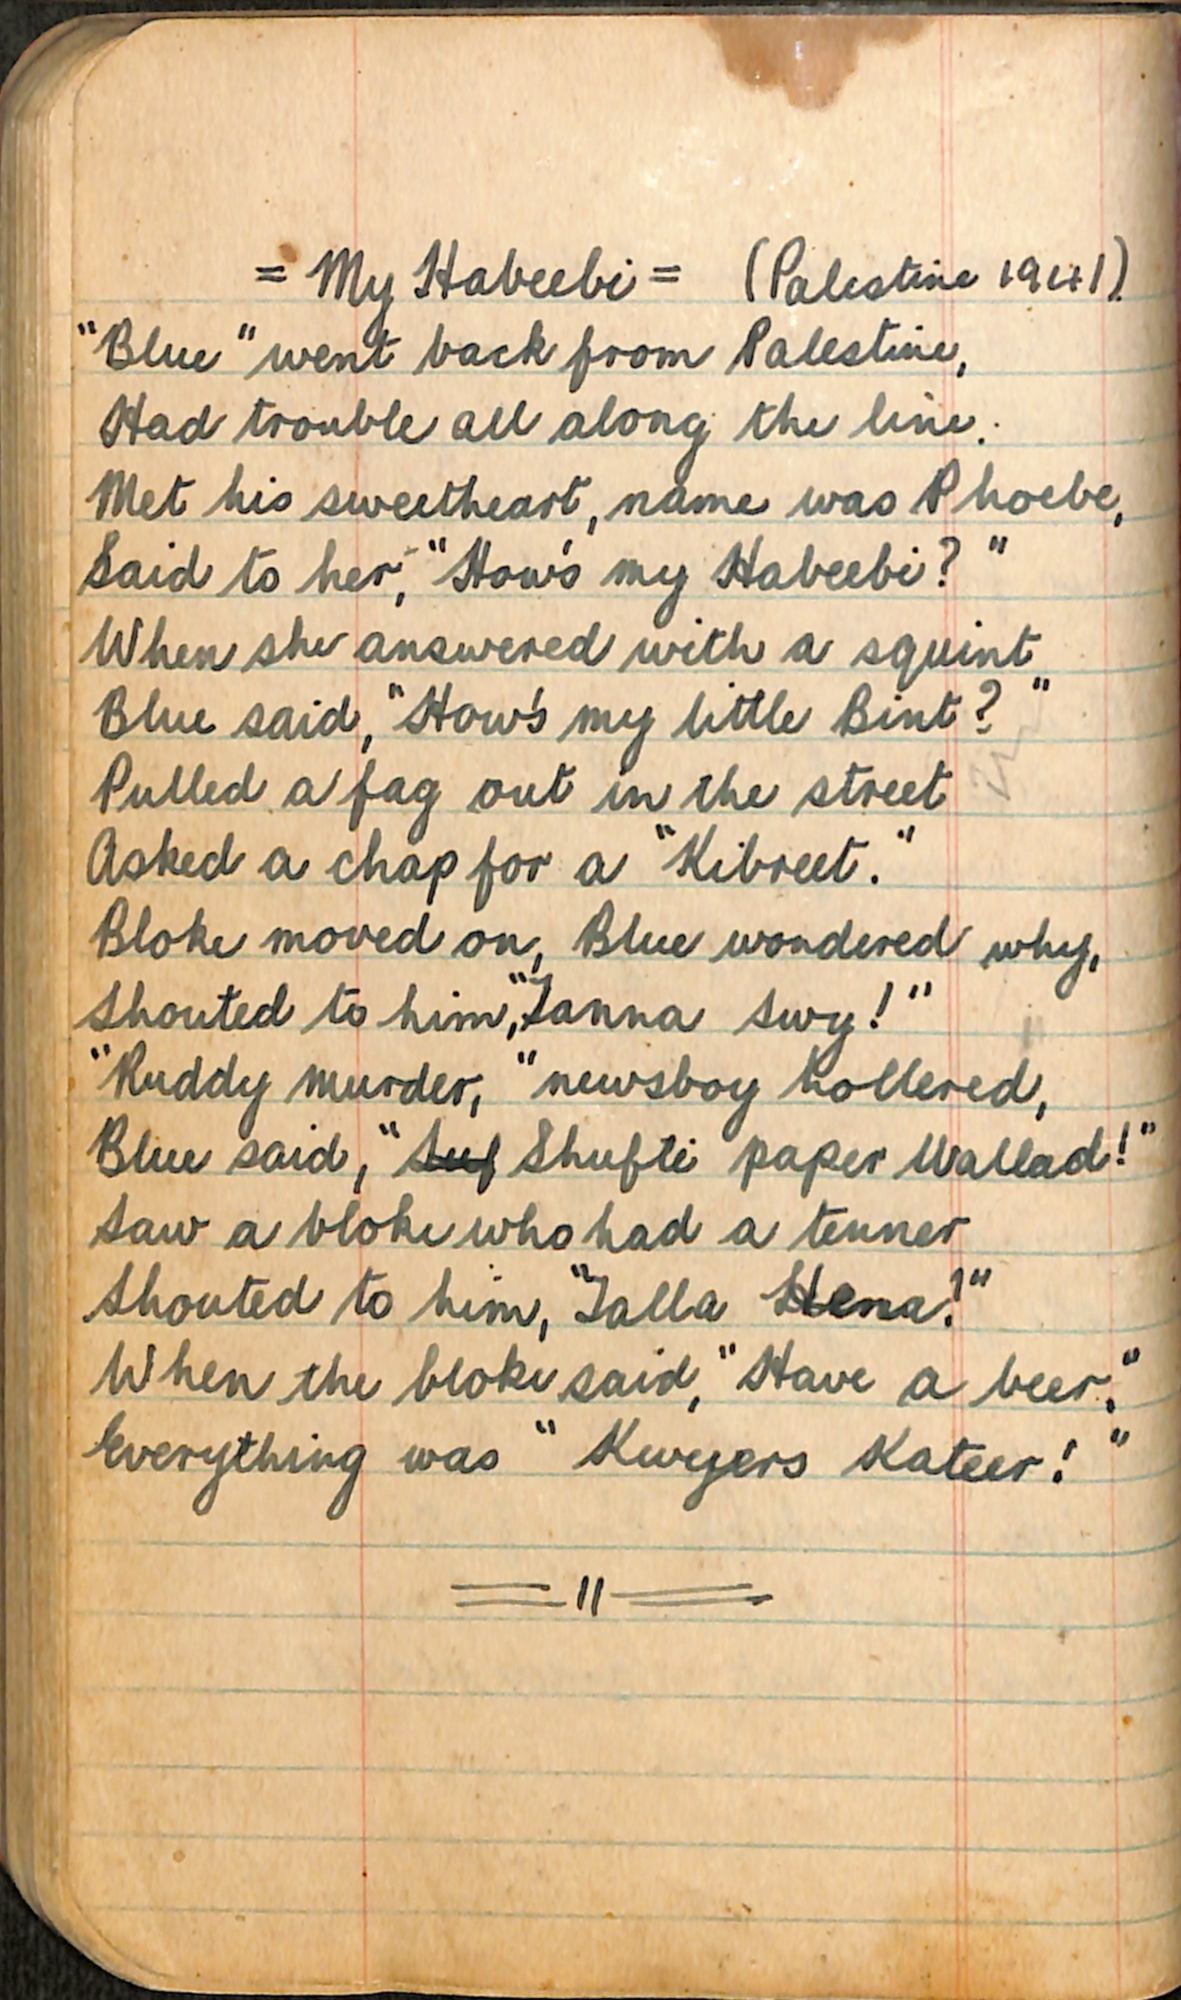 = My Habeebi = (Palestine 1941)
"Blue" went back from Palestine,
Had trouble all along the line.
Met his sweetheart, name was Phoebe,
Said to her, "How's my Habeebi?"
When she answered with a squint
Blue said, "How's my little Bint?"
Pulled a fag out in the street
Asked a chap for a "Kibreet."
Bloke moved on, Blue wondered why,
Shouted to him, "Ianna swy!"
"Ruddy murder," newsboy hollered,
Blue said, "Suf Shufti paper Wallad!"
Saw a bloke who had a tenner
Shouted to him, "Talla Hena!"
When the bloke said, "Have a beer,"
Everything was "Kwyers Kateer!"